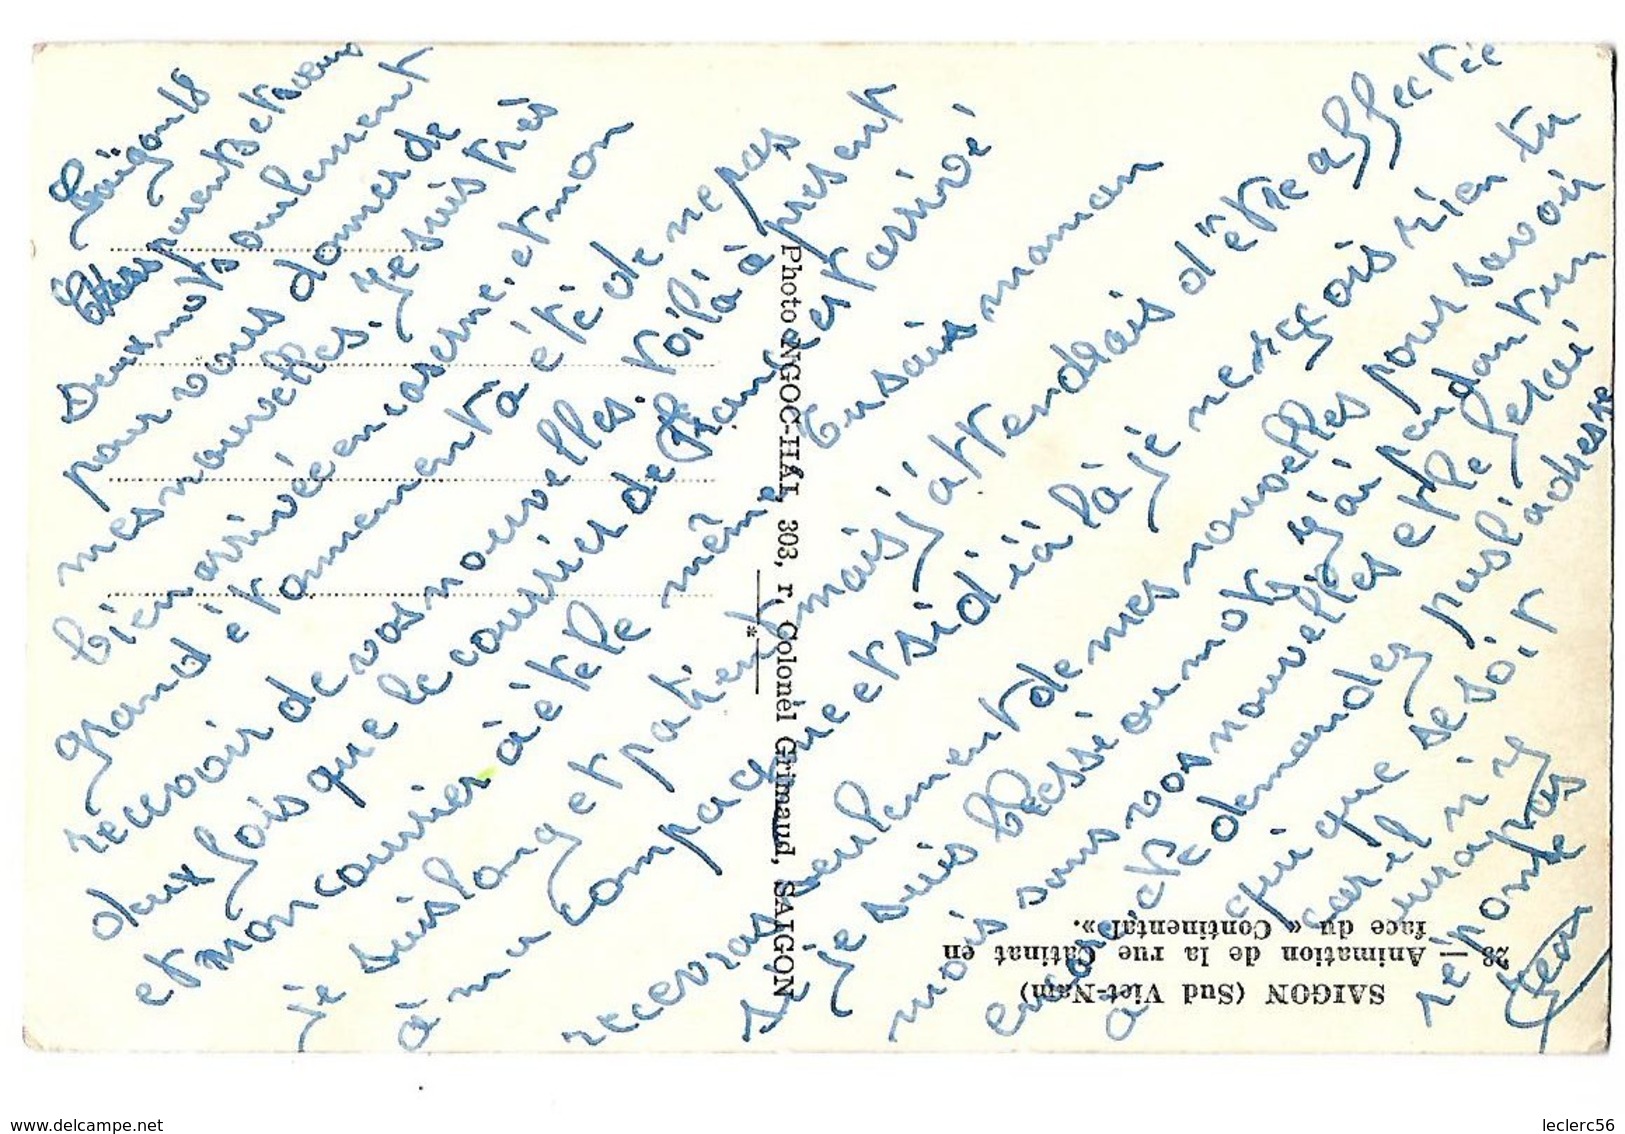 Saïgon le 18
Chers parents et soeurs
deux mots seulement
pour vous donner de
mes nouvelles. Je suis très
bien arrivée en caserne. et mon
grand étonnement a été de ne pas
recevoir de vos nouvelles. voilà à present
deux fois que le courrier de France est arrivé
et mon courrier à été le même
Tu sais maman
je suis long et patient mais j'attendrais d'être affectée
à ma compagnie et si d'ià là je ne reçois rien tu
recevras seulement de mes nouvelles pour savoir
si je suis blessé ou mort j'ai pendant un
mois sans vos nouvelles et le serai
encore et demandez pas l'adresse
a qui que se soit
car il n'y
aura pas
réponse
Jean
Photo NGOC-HAI, 303, r. Colonel Grimaud, SAIGON
*
SAIGON (Sud Viet-Nam)
28 — Animation de la rue Catinat en
face du « Continental ».
www.delcampe.net
leclerc56